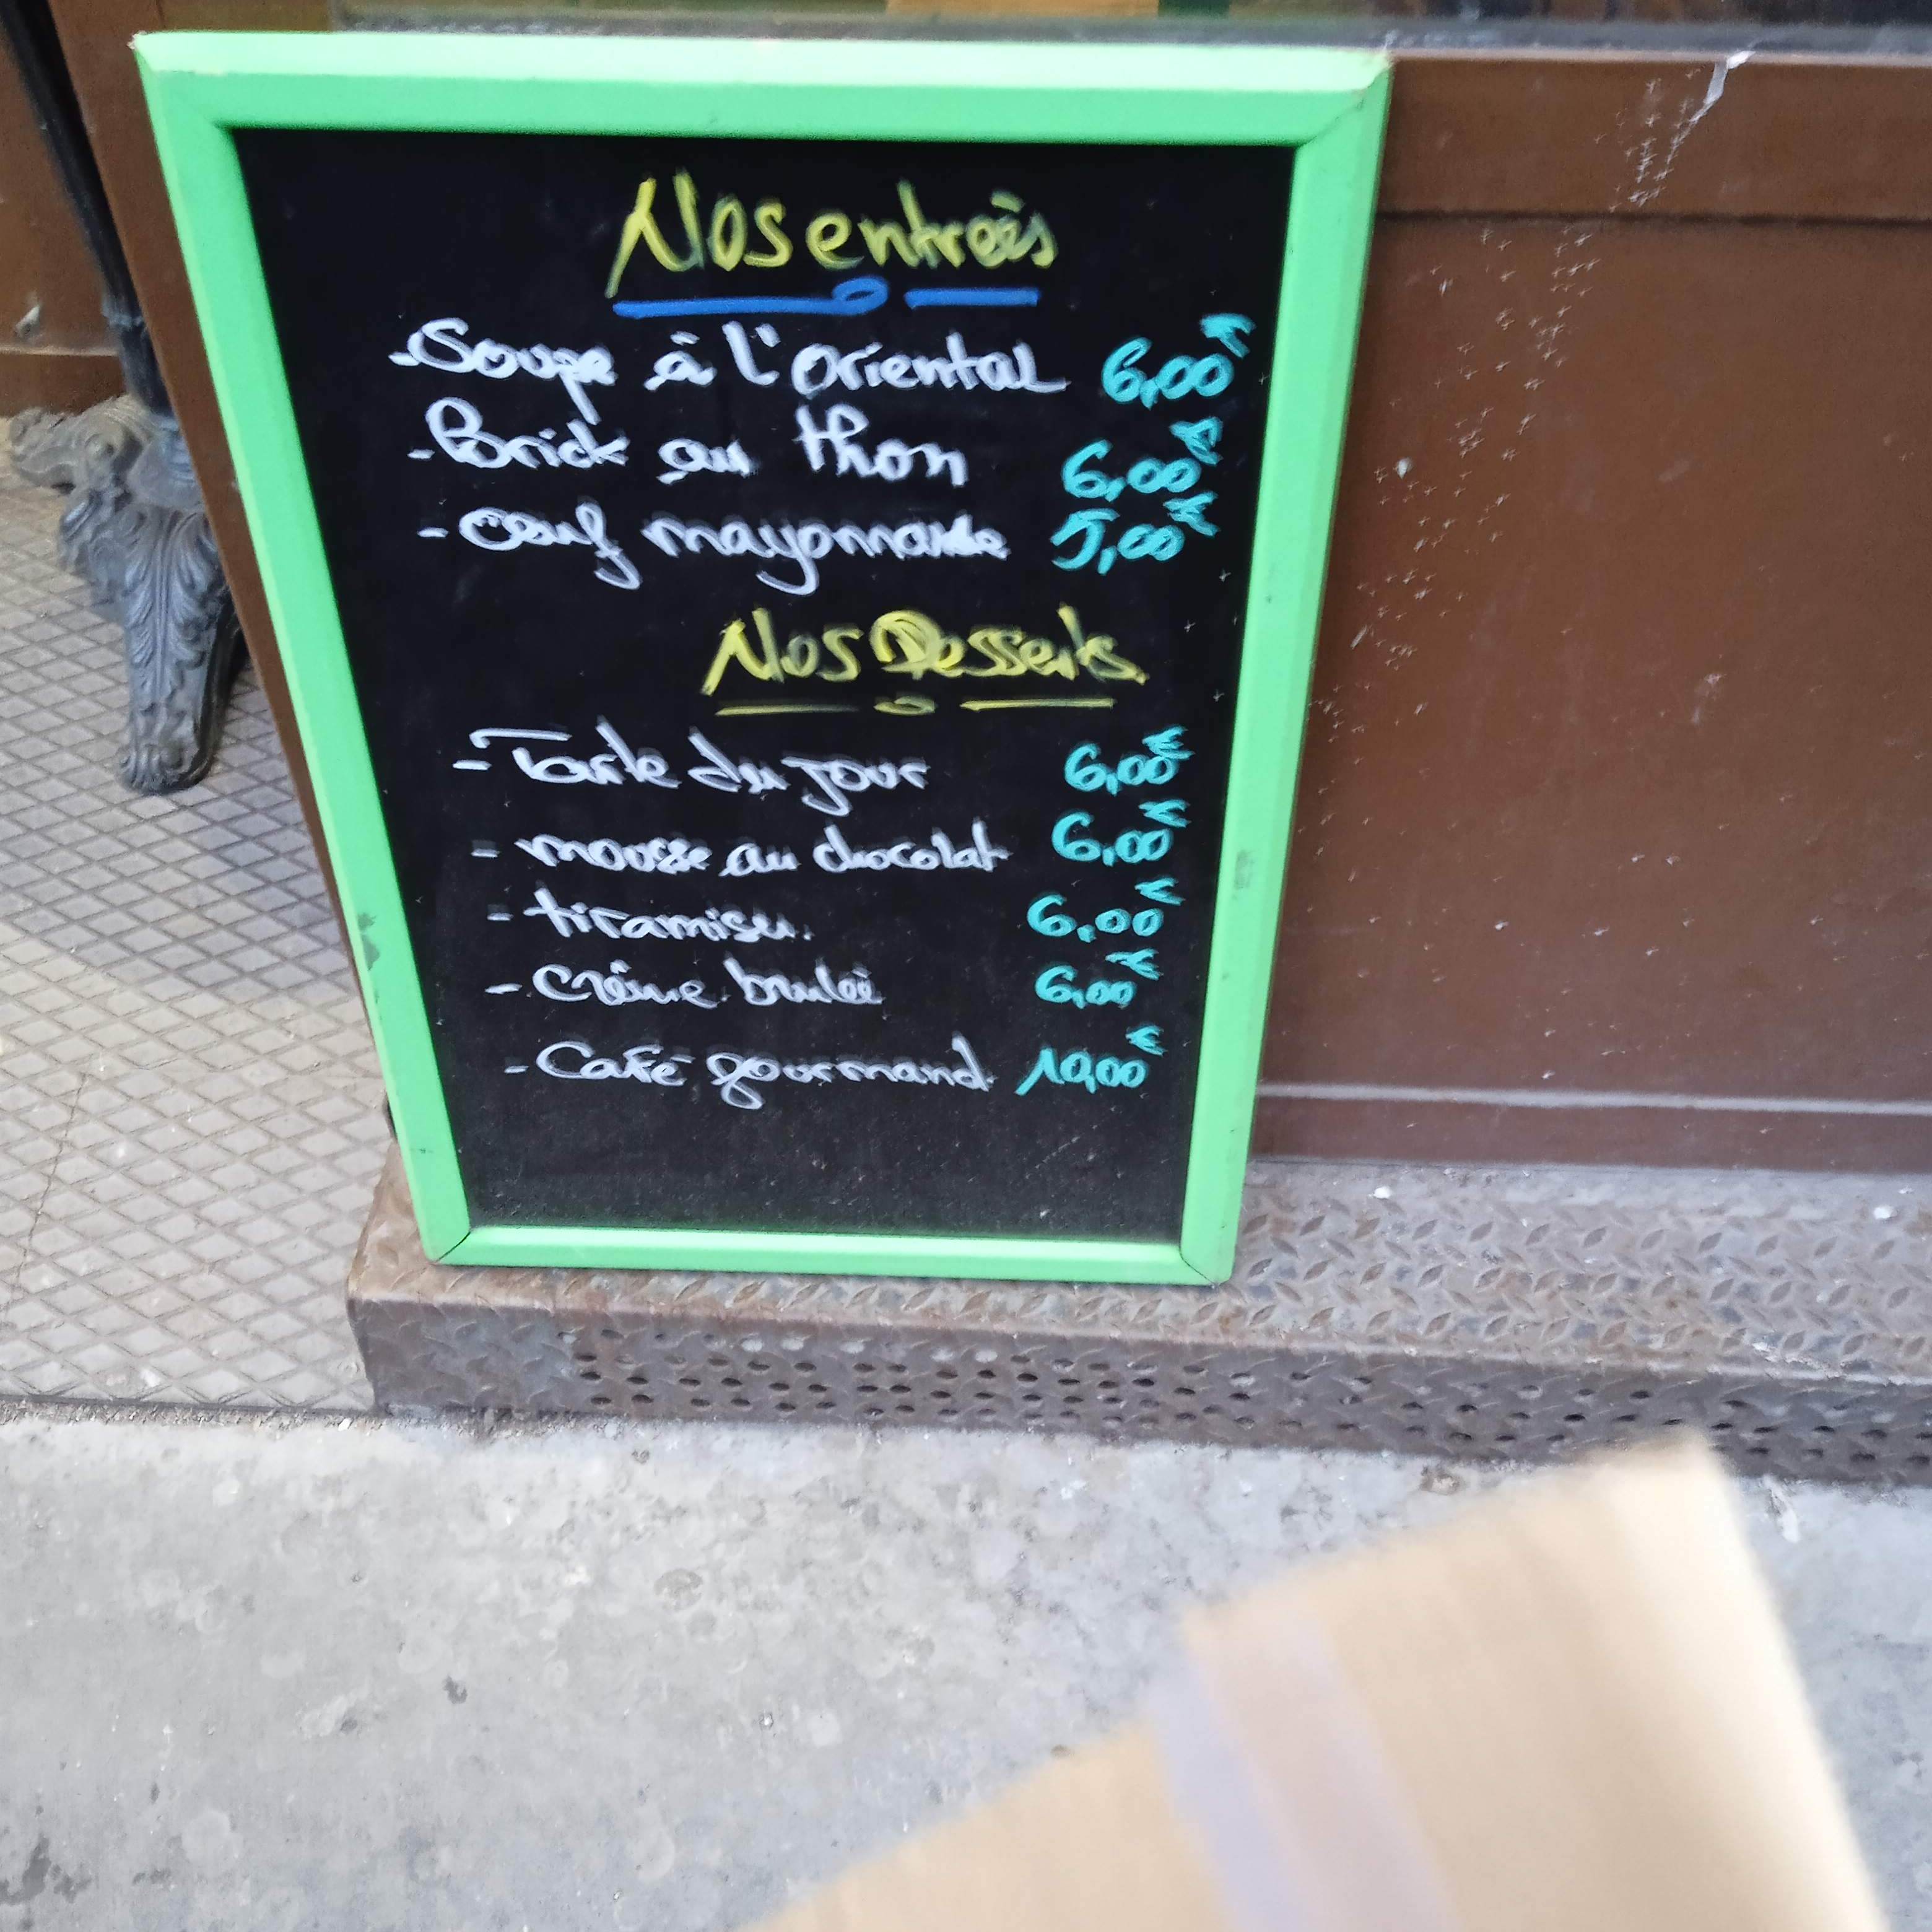 Nos entreés
- Soupe à l'oriental 6,00€
- Brick au thon 6,00€
- Oeuf mayonnaise 5,00€
Nos Desserts
- Tarte du jour 6,00€
- mousse au chocolat 6,00€
- tiramisu. 6,00€
- Crème brulée 6,00€
- Café gourmand 10,00€